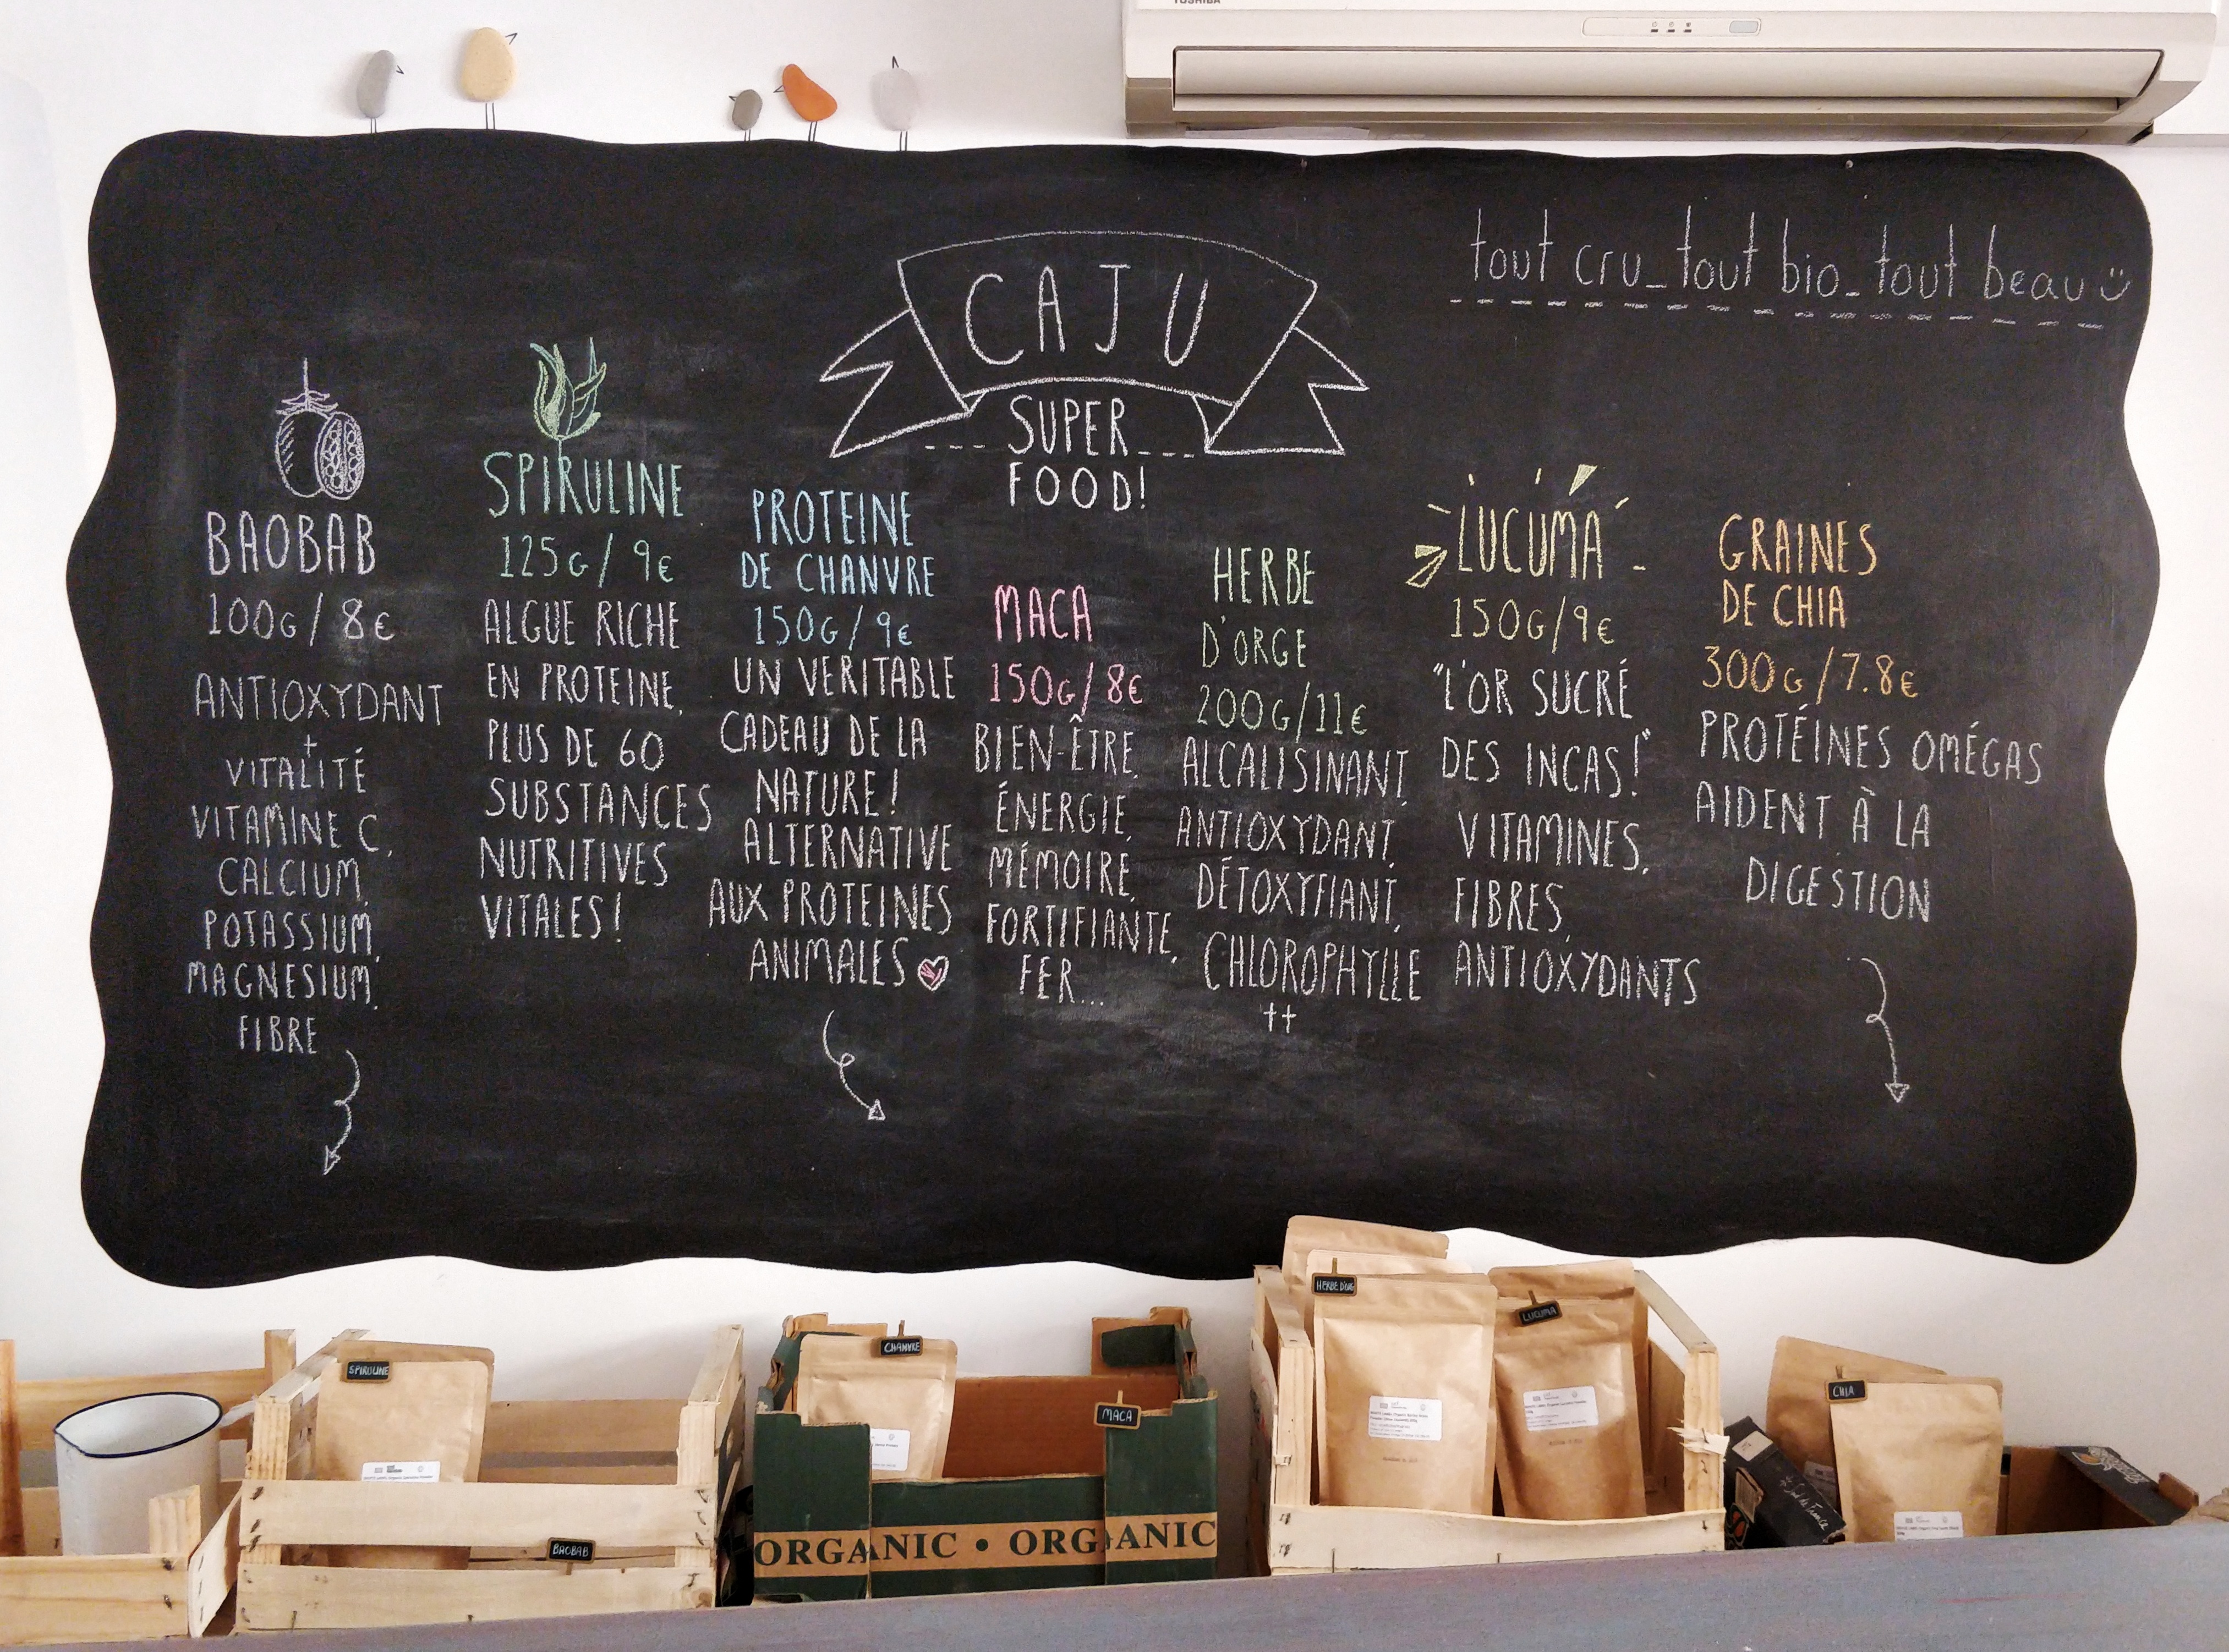 TOSHIBA
tout cru_tout bio_tout beau
CAJU
SUPER
FOOD!
BAOBAB
100G/8€
ANTIOXYDANT
+
VITALITÉ
VITAMINE C,
CALCIUM,
POTASSIUM,
MAGNESIUM,
FIBRE
SPIRULINE
125G/9€
ALGUE RICHE
EN PROTEINE,
PLUS DE 60
SUBSTANCES
NUTRITIVES
VITALES!
PROTEINE
DE CHANVRE
150G/9€
UN VERITABLE
CADEAU DE LA
NATURE!
ALTERNATIVE
AUX PROTEINES
ANIMALES
MACA
150G/8€
BIEN-ÊTRE,
ÉNERGIE,
MÉMOIRE,
FORTIFIANTE,
FER...
HERBE
D'ORGE
200G/11€
ALCALISINANT,
ANTIOXYDANT,
DÉTOXYFIANT,
CHLOROPHYLLE
++
LUCUMA
150G/9€
"L'OR SUCRÉ
DES INCAS!"
VITAMINES,
FIBRES,
ANTIOXYDANTS
GRAINES
DE CHIA
300G/7.8€
PROTÉINES OMÉGAS
AIDENT À LA
DIGESTION
SPIRULINE
BAOBAB
CHANVRE
MACA
ORGANIC • ORGANIC
HERBE D'ORGE
LUCUMA
CHIA